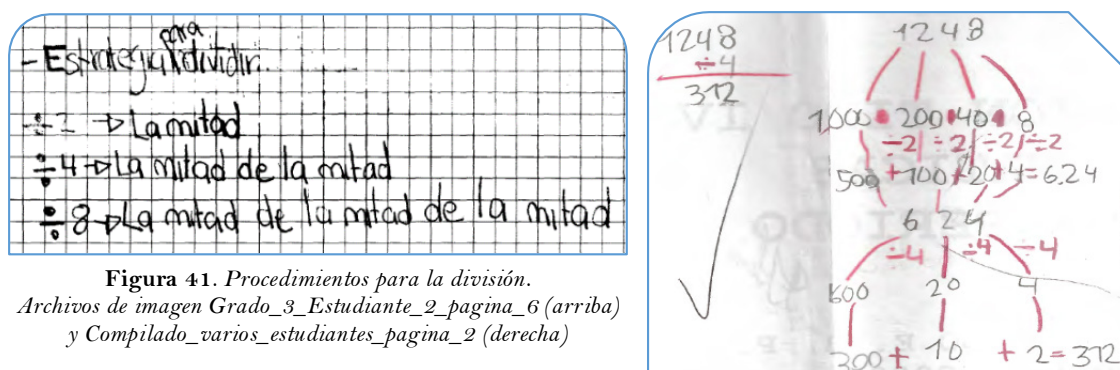 para
- Estrategia dividir.
÷2 → La mitad
÷4 → La mitad de la mitad
÷8 → La mitad de la mitad de la mitad
Figura 41. Procedimientos para la división.
Archivos de imagen Grado_3_Estudiante_2_pagina_6 (arriba)
y Compilado_varios_estudiantes_pagina_2 (derecha)
1248
÷4
312
1248
1000 200 40 8
÷2 ÷2 ÷2 ÷2
500 + 100 + 20 + 4 = 6.24
624
÷4 ÷4 ÷4
600 20 4
300 + 10 + 2 = 312